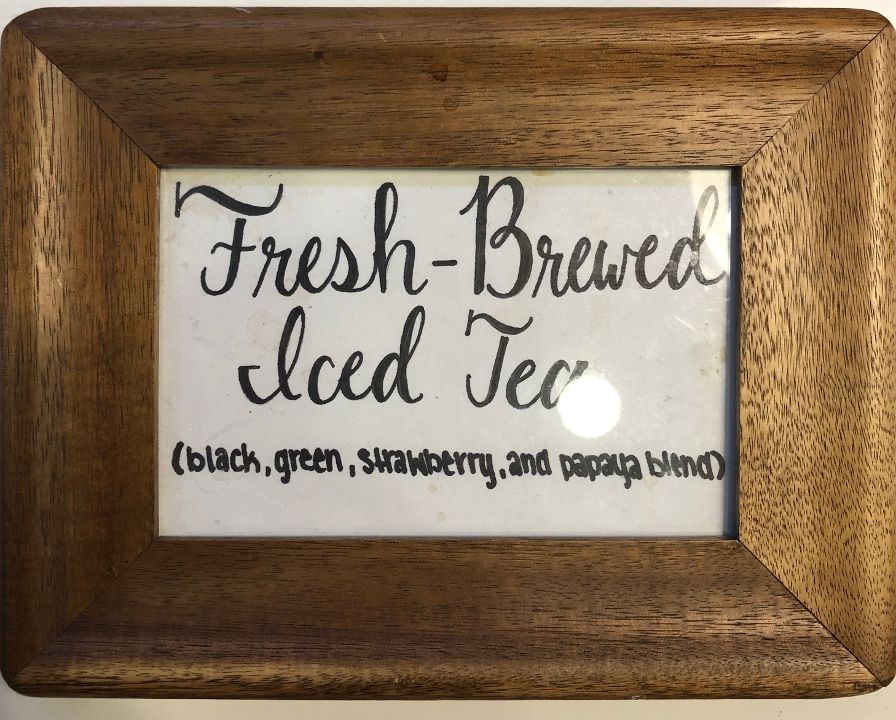 Fresh-Brewed
Iced Tea
(black, green, strawberry, and papaya blend)